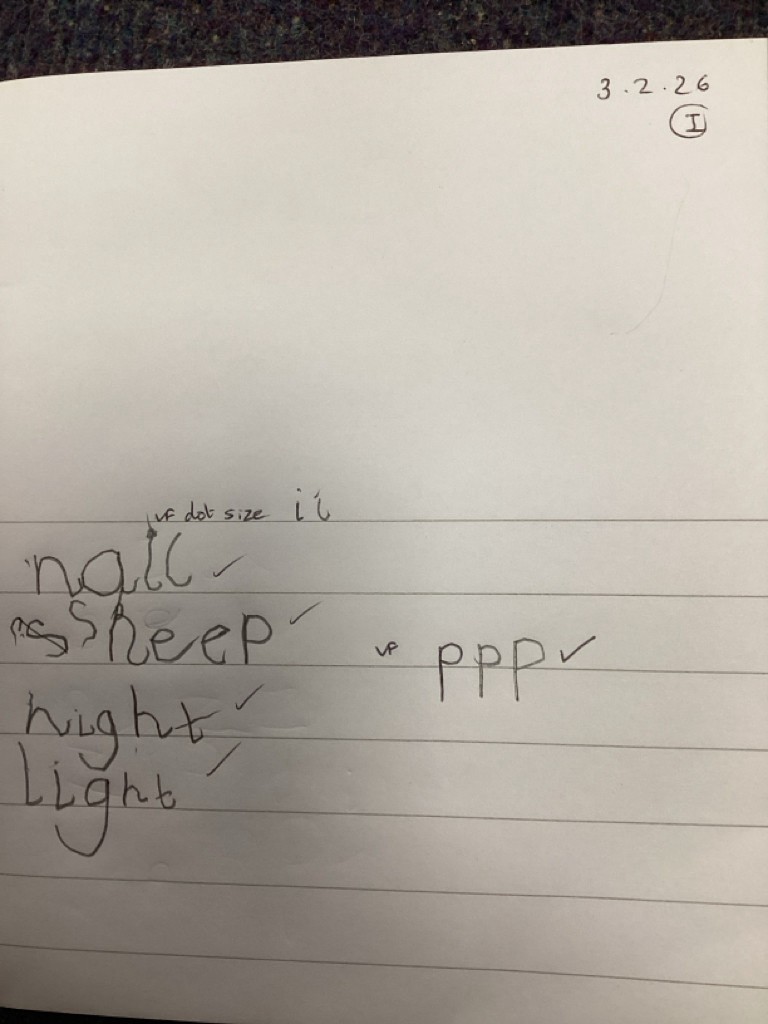 3.2.26
I
VF dot size ii
nail ✓
sheep ✓
VF ppp ✓
night ✓
light ✓